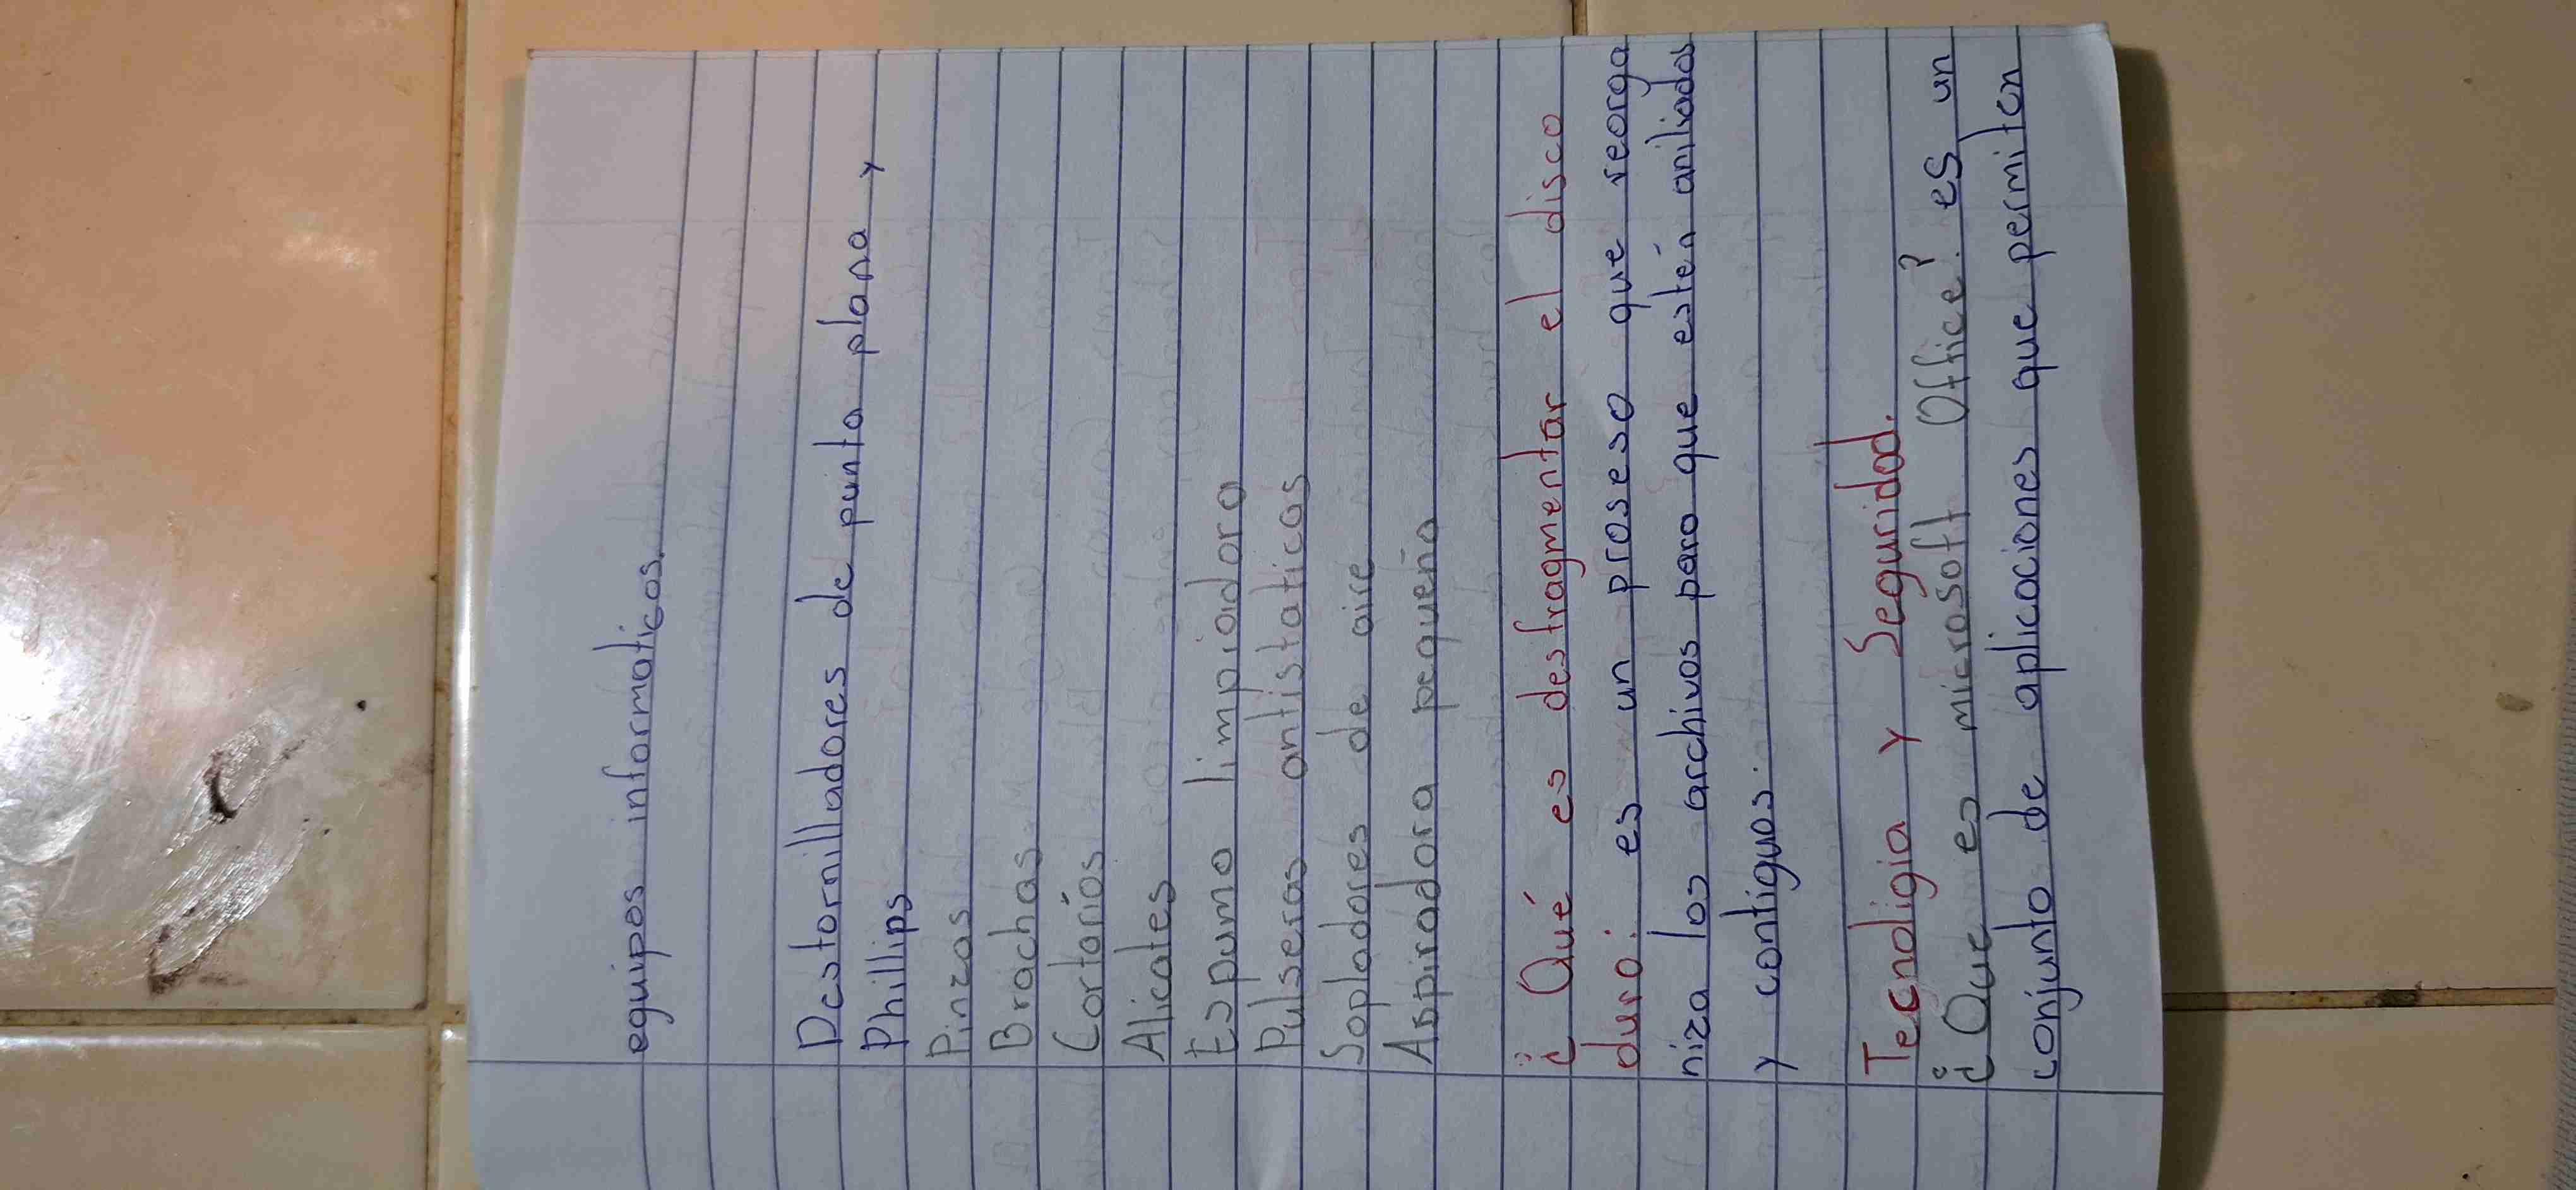 equipos informaticos.
Destornilladores de punta plana y
Phillips
Pinzas
Brochas
Cortaríos
Alicates
Espuma limpiadora
Pulseras antistaticas
Sopladores de aire
Aspiradora pequeña
¿Qué es desfragmentar el disco
duro: es un proseso que reorga
niza los archivos para que estén aniliados
y contiguos.
Tecnoligia y Seguridad.
¿Que es microsoft Office? es un
conjunto de aplicaciones que permiten